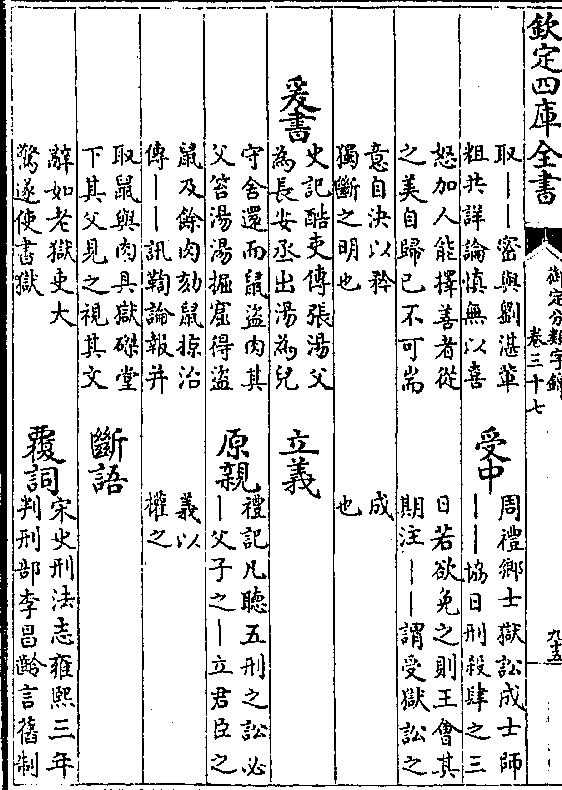 欽定四庫全書
御定分類字錦
卷三十七
九十五
取——密與劉湛輩
粗共詳論慎無以喜
怒加人能擇善者從
之美自歸己不可耑
意自決以矜
獨斷之明也
爰書
史記酷吏傳張湯父
為長安丞出湯為兒
守舍還而鼠盜肉其
父笞湯湯掘窟得盜
鼠及餘肉劾鼠掠治
傳——訊鞫論報并
取鼠與肉具獄磔堂
下其父見之視其文
辭如老獄吏大
驚遂使書獄
受中
周禮鄉士獄訟成士師
——協日刑殺肆之三
日若欲免之則王會其
期注——謂受獄訟之
成
也
立義
原親
禮記凡聽五刑之訟必
—父子之—立君臣之
義以
權之
斷語
覆詞
宋史刑法志雍熙三年
判刑部李昌齡言舊制